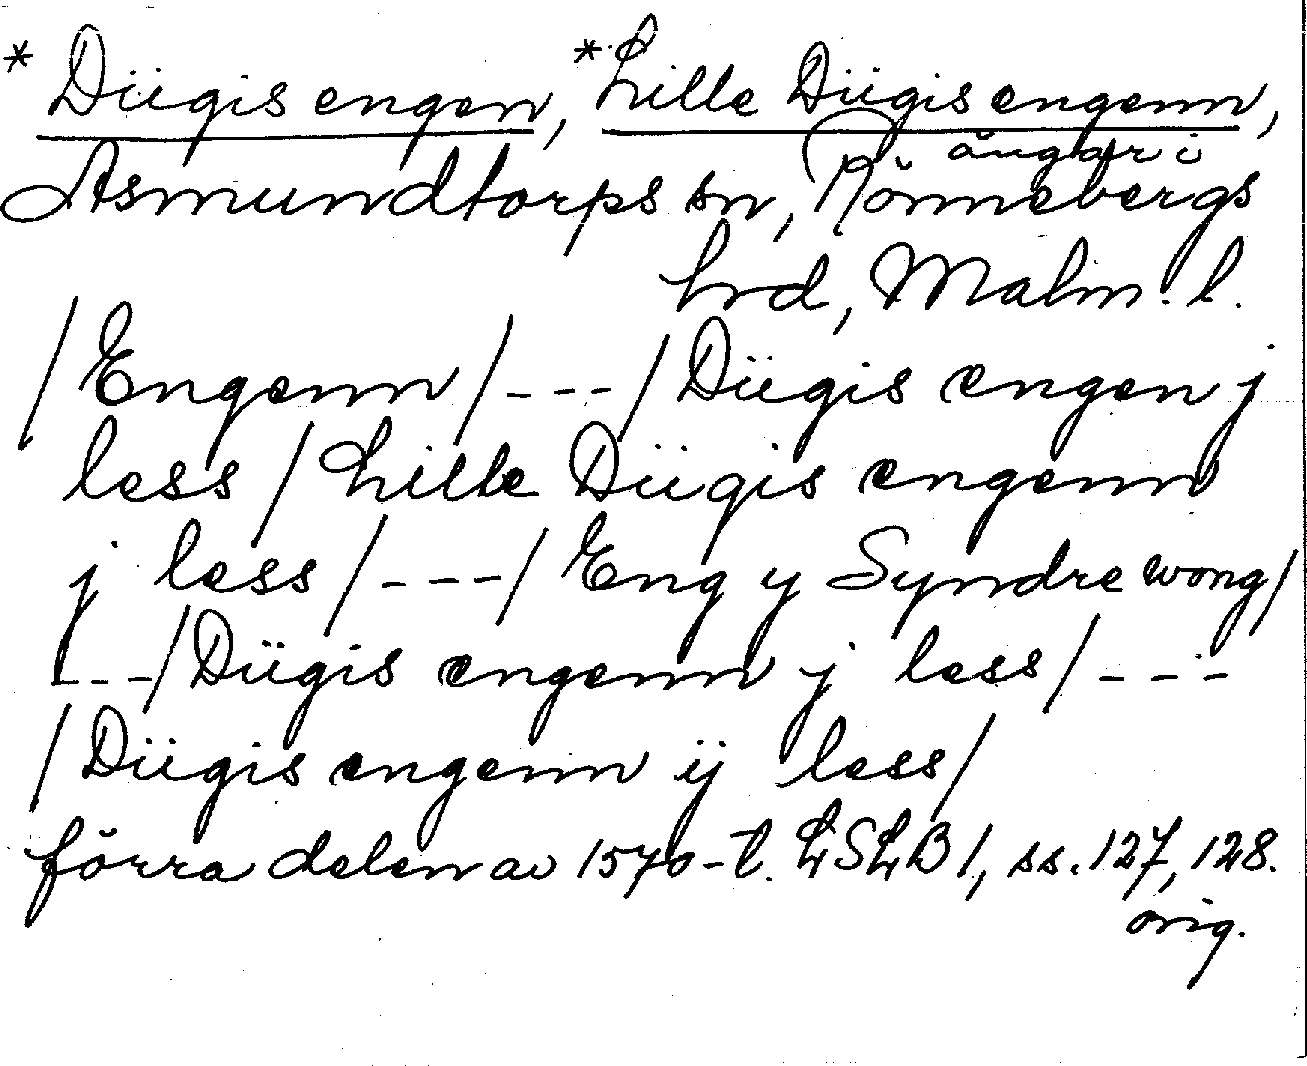 * Dügis engen, *Lille Dügis engenn,
ängar i
Asmundtorps sn, Rönnebergs
hrd, Malm. l.
/Engenn/---/Dügis engen j
less/Lille Dügis engenn
j less/---/Eng y Syndre wong/
---/Dügis engenn j less/---
/Dügis engenn ij less/
förra delen av 1570-t. LSLB 1, ss. 127, 128.
orig.